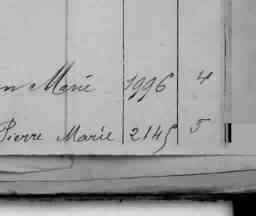 n Marie 1996 4
Pierre Marie 2145 5